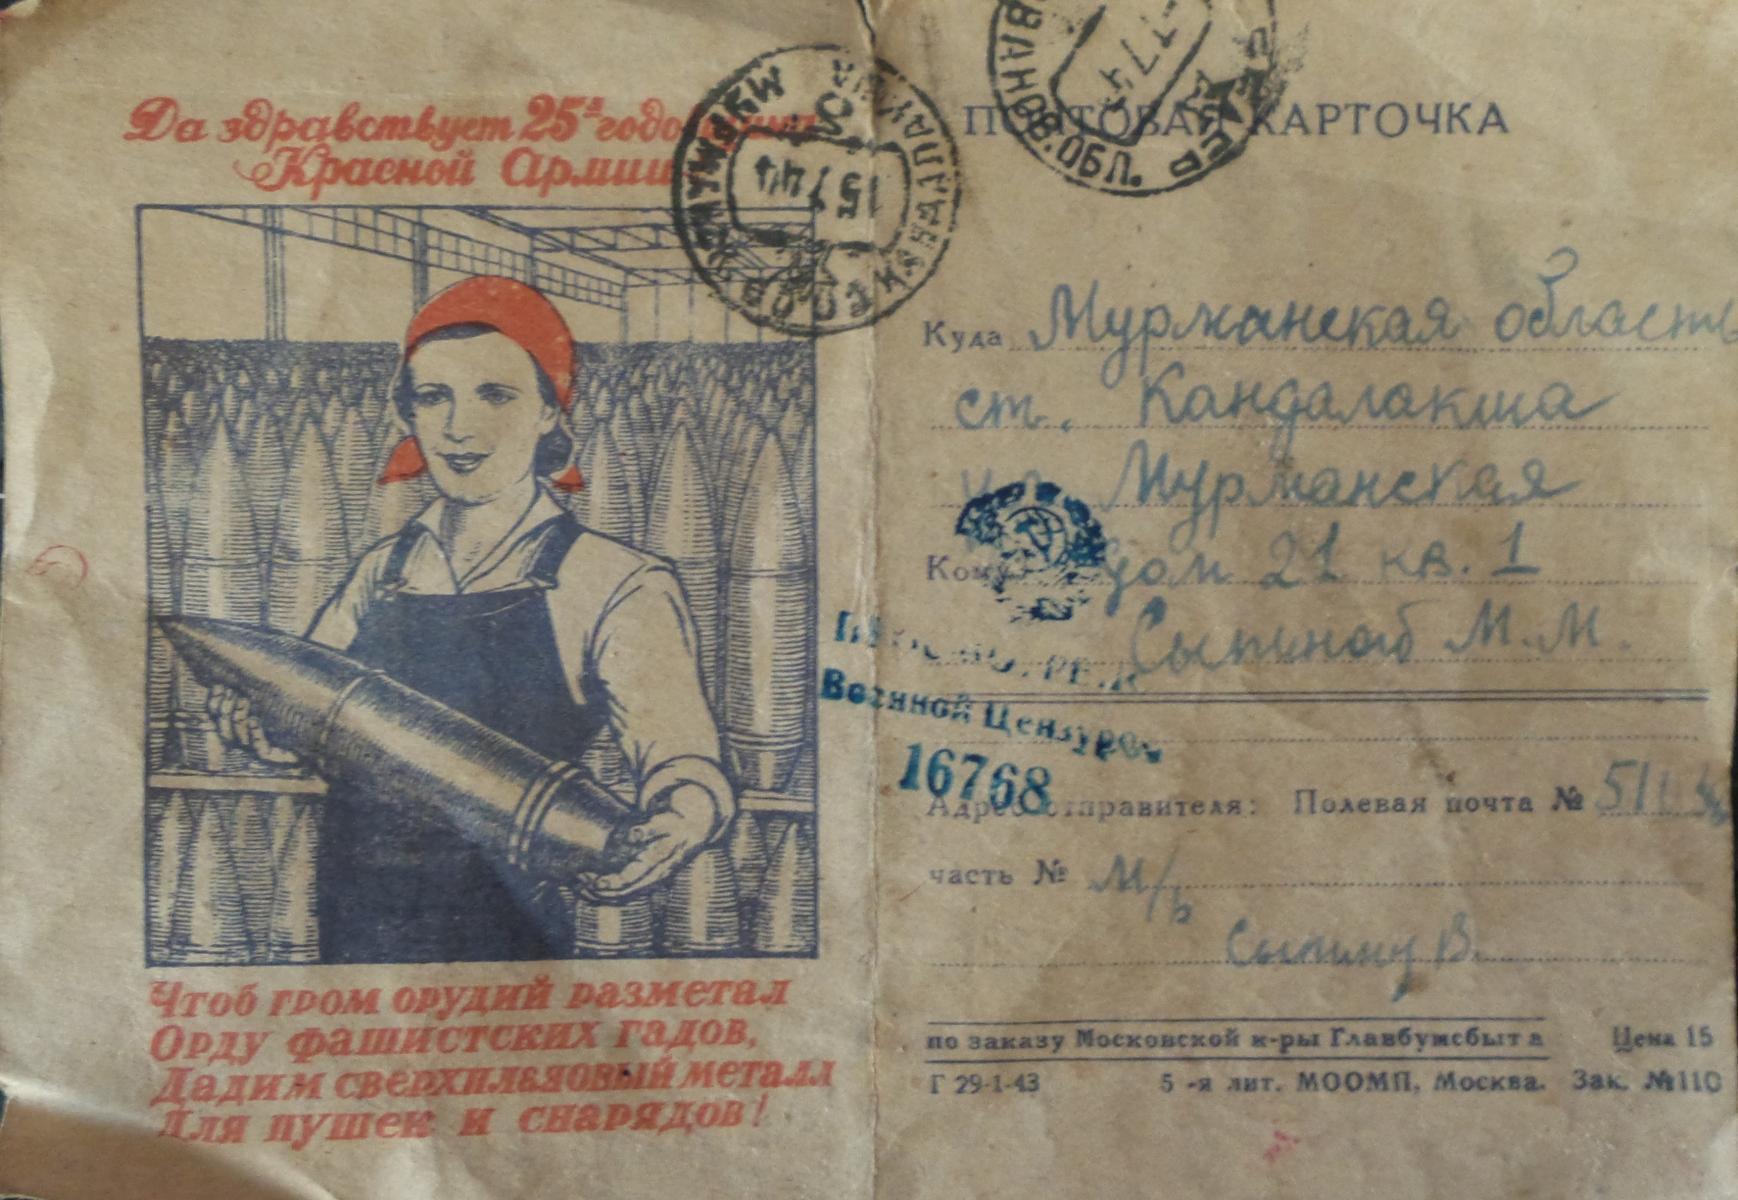 Да здравствует 25я годовщина
Красной Армии
Чтоб гром орудий разметал
Орду фашистских гадов,
Дадим сверхплановый металл
Для пушек и снарядов!
ПОЧТОВАЯ КАРТОЧКА
КАНДАЛАКША МУРМАНСК. ОБ
15 7 44
ИВАНОВ. ОБЛ.
СССР
Куда Мурманская область
ст. Кандалакша
ул. Мурманская
Кому дом 21 кв. 1
М. М.
ПРОСМОТРЕНО
Военной Цензурой
16768
Адрес отправителя: Полевая почта №
часть №
В.
по заказу Московской к-ры Главбумсбыта Цена 15
Г 29-1-43 5-я лит. МООМП, Москва. Зак. №110